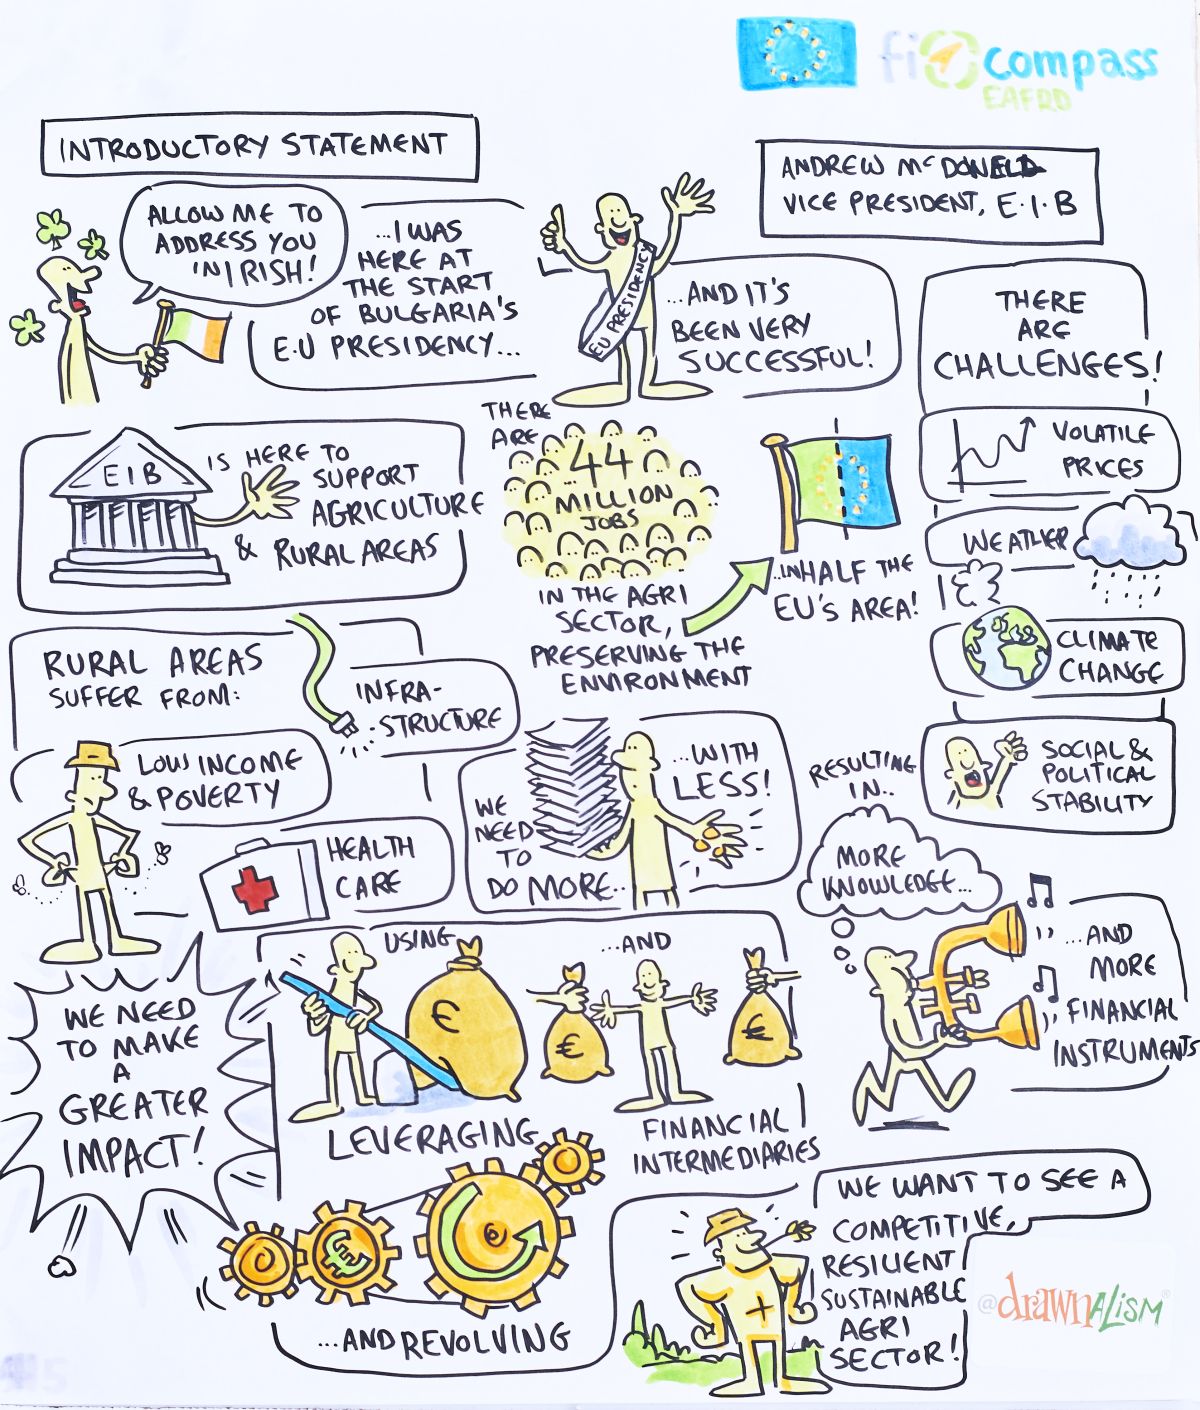 fi compass
EAFRD
INTRODUCTORY STATEMENT
ANDREW McDONELD
VICE PRESIDENT, E.I.B
ALLOW ME TO
ADDRESS YOU
IN IRISH!
...I WAS
HERE AT
THE START
OF BULGARIA'S
E.U PRESIDENCY...
EU PRESIDENCY
...AND IT'S
BEEN VERY
SUCCESSFUL!
THERE
ARE
CHALLENGES!
VOLATILE
PRICES
WEATHER
CLIMATE
CHANGE
SOCIAL &
POLITICAL
STABILITY
EIB
IS HERE TO
SUPPORT
AGRICULTURE
& RURAL AREAS
THERE
ARE
44
MILLION
JOBS
IN THE AGRI
SECTOR,
PRESERVING THE
ENVIRONMENT
...IN HALF THE
EU'S AREA!
RURAL AREAS
SUFFER FROM:
INFRA-
STRUCTURE
LOW INCOME
& POVERTY
HEALTH
CARE
WE
NEED
TO
DO MORE...
...WITH
LESS!
RESULTING
IN...
MORE
KNOWLEDGE...
...AND
MORE
FINANCIAL
INSTRUMENTS
WE NEED
TO MAKE
A
GREATER
IMPACT!
USING
€
LEVERAGING
...AND
€
€
FINANCIAL
INTERMEDIARIES
€
e
...AND REVOLVING
WE WANT TO SEE A
COMPETITIVE,
RESILIENT
SUSTAINABLE
AGRI
SECTOR!
@drawnALISM®